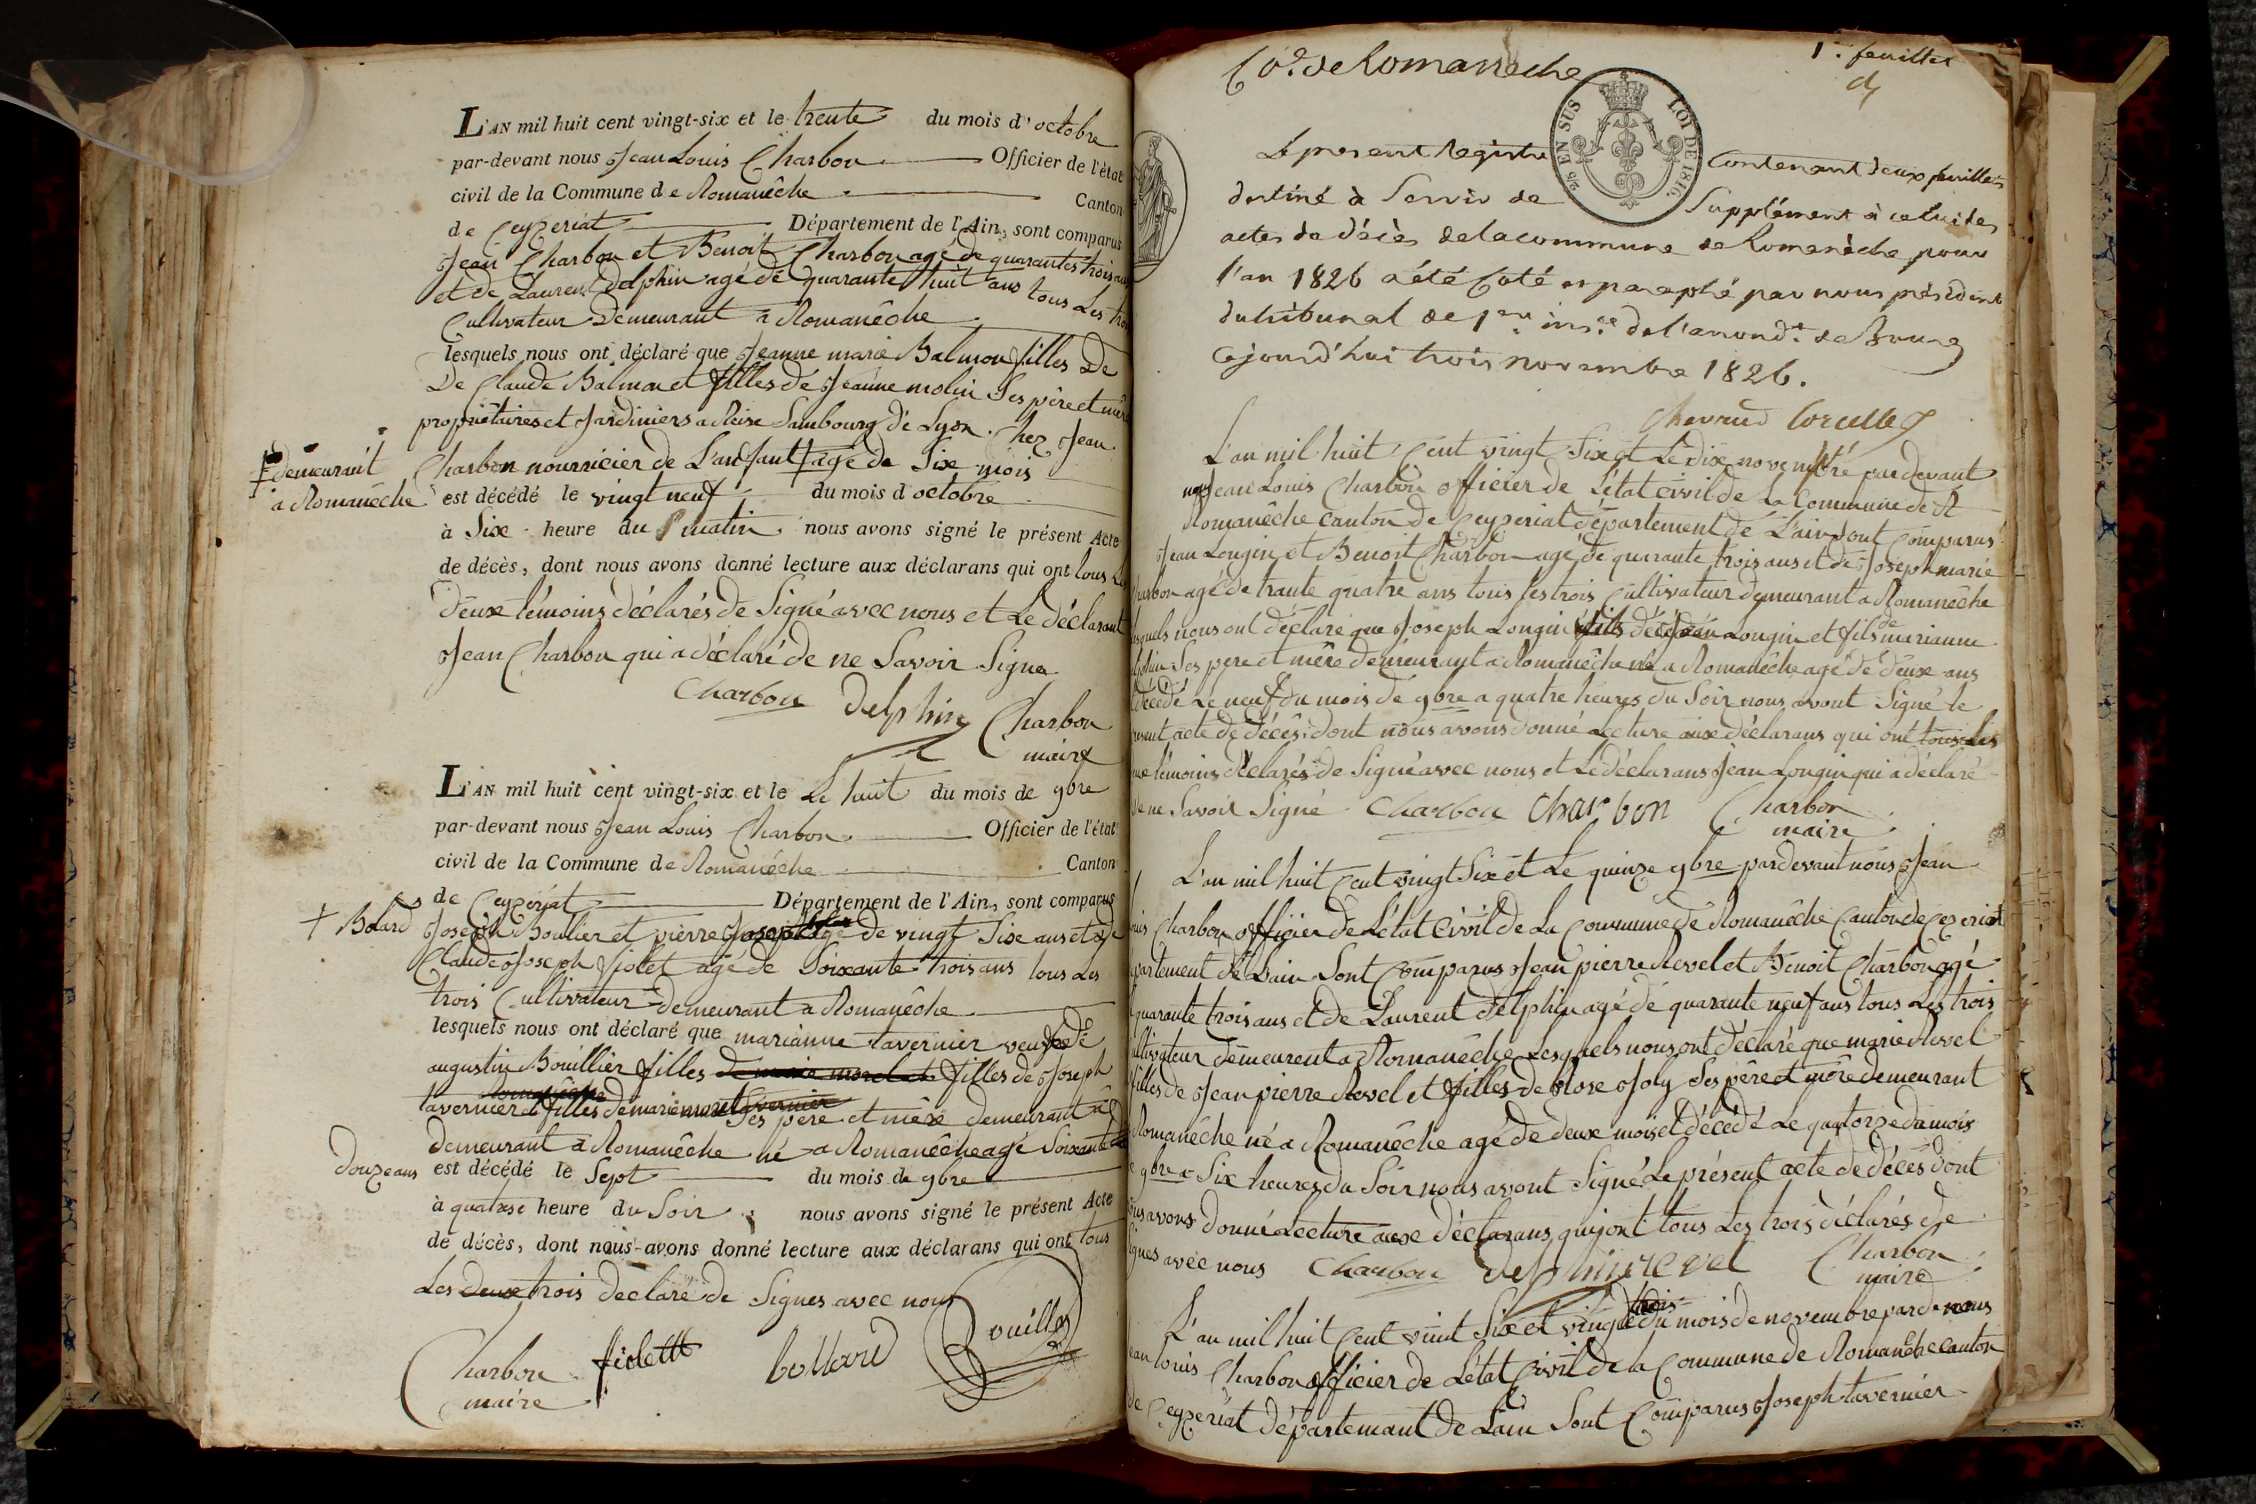 L'AN mil huit cent vingt-six et le trente du mois d'octobre
par-devant nous Jean Louis Charbon Officier de l'état
civil de la Commune de Romanêche Canton
de Ceyzeriat Département de l'Ain, sont comparus
Jean Charbon et Benoit Charbon agé de quarantes trois ans
et de Laurent delphin agé de quarante huit ans tous Les trois
Cultivateur Demeurant a Romanêche
lesquels nous ont déclaré que Jeanne marie Balmon filles De
De Claude Balmon et filles de Jeanne molin Ses père et mère
propriétaires et Jardiniers a Vaise fambourg de Lyon. Chez Jean
Charbon nourricier de L'anfant ‡ agé de Six mois
‡ demeurant
a Romanêche
est décédé le vingt neuf du mois d octobre
à Six heure du matin nous avons signé le présent Acte
de décès, dont nous avons donné lecture aux déclarans qui ont tous Les
Deux témoins déclarés de Signé avec nous et Le déclarant
Jean Charbon qui a déclaré de ne Savoir Signe
Charbon Delphin Charbon
maire
L'AN mil huit cent vingt-six et le Le huit du mois de 9bre
par-devant nous Jean Louis Charbon Officier de l'état
civil de la Commune de Romanêche Canton
de Ceyzeriat Département de l'Ain, sont comparus
+ Bolard
Joseph Boulier et pierre Joseph agé de vingt Six ans et de
Claude Joseph fiolet agé de Soixante trois ans tous Les
trois Cultivateur demeurant a Romanêche
lesquels nous ont déclaré que marianne tavernier veuve de
augustin Bouillier filles de marie morel et filles de Joseph
tavernier et filles de marie morel tavernier Ses père et mère demeurant a
demeurant a Romanêche né a Romanêche agé Soixante
douze ans
est décédé le Sept du mois de 9bre
à quatres heure du Soir nous avons signé le présent Acte
de décès, dont nous avons donné lecture aux déclarans qui ont tous
Les deux trois declaré de Signes avec nous
Charbon fiolett bollard Bouillier
maire
Co.ne de Romanèche
1er feuillet
EN SUS LOI DE 1816.
Le present Registre Contenant deux feuillets
destiné à Servir de Supplément à celui des
actes de décès de la commune de Romanèche pour
l'an 1826 a été Coté et paraphé par nous président
du tribunal de 1ere ins.ce de l'arrond.t de Bourg
cejourd'hui trois novembre 1826.
L'an mil huit Cent vingt Six et Le dix novembre pardevant
nous Jean Louis Charbon officier de L'état civil de La Commune de R
Romanêche canton de Ceyzeriat département de L'ain Sont Comparus
Jean Longin et Benoit Charbon agé de quarante trois ans et de Joseph marie
Charbon agé de trante quatre ans tous les trois Cultivateur demeurant a Romanêche
lesquels nous ont déclaré que Joseph Longin fils de Jean Longin et fils de marianne
delphin Ses pere et mère demeurant a Romanêche né a Romanêche agé de deux ans
décédé Le neuf du mois de 9bre a quatre heures du Soir nous avont Signé le
présent acte de décès, dont nous avons donné Lecture aux déclarans qui ont tous Les
deux témoins déclarés de Signé avec nous et Le déclarans Jean Longin qui a déclaré
de ne Savoir Signé Charbon Charbon Charbon
maire
L'an mil huit Cent vingt Six et Le quinze 9bre pardevant nous Jean
Louis Charbon officier de L'état Civil de La Commune de Romanêche Canton de Ceyzeriat
département de L'ain Sont Comparus Jean pierre Revel et Benoit Charbon agé
quarante trois ans et de Laurent delphin agé de quarante neuf ans tous Les trois
Cultivateur demeurent a Romanêche Lesquels nous ont déclaré que marie Revel
filles de Jean pierre Revel et filles de Rose Joly Ses père et mère demeurant
Romanêche né a Romanêche agé de deux mois et décédé Le quatorze du mois
de 9bre a Six heures du Soir nous avont Signé Le présent acte de décès dont
nous avons donné Lecture aux déclarans qui ont tous Les trois déclarés de
Signes avec nous Charbon delphin revel Charbon
maire
L'an mil huit Cent vint Six et vingt trois du mois de novembre parde nous
Jean Louis Charbon officier de L'état Civil de la Commune de Romanêche canton
de Ceyzeriat départemant de L'ain Sont Comparus Joseph tavernier